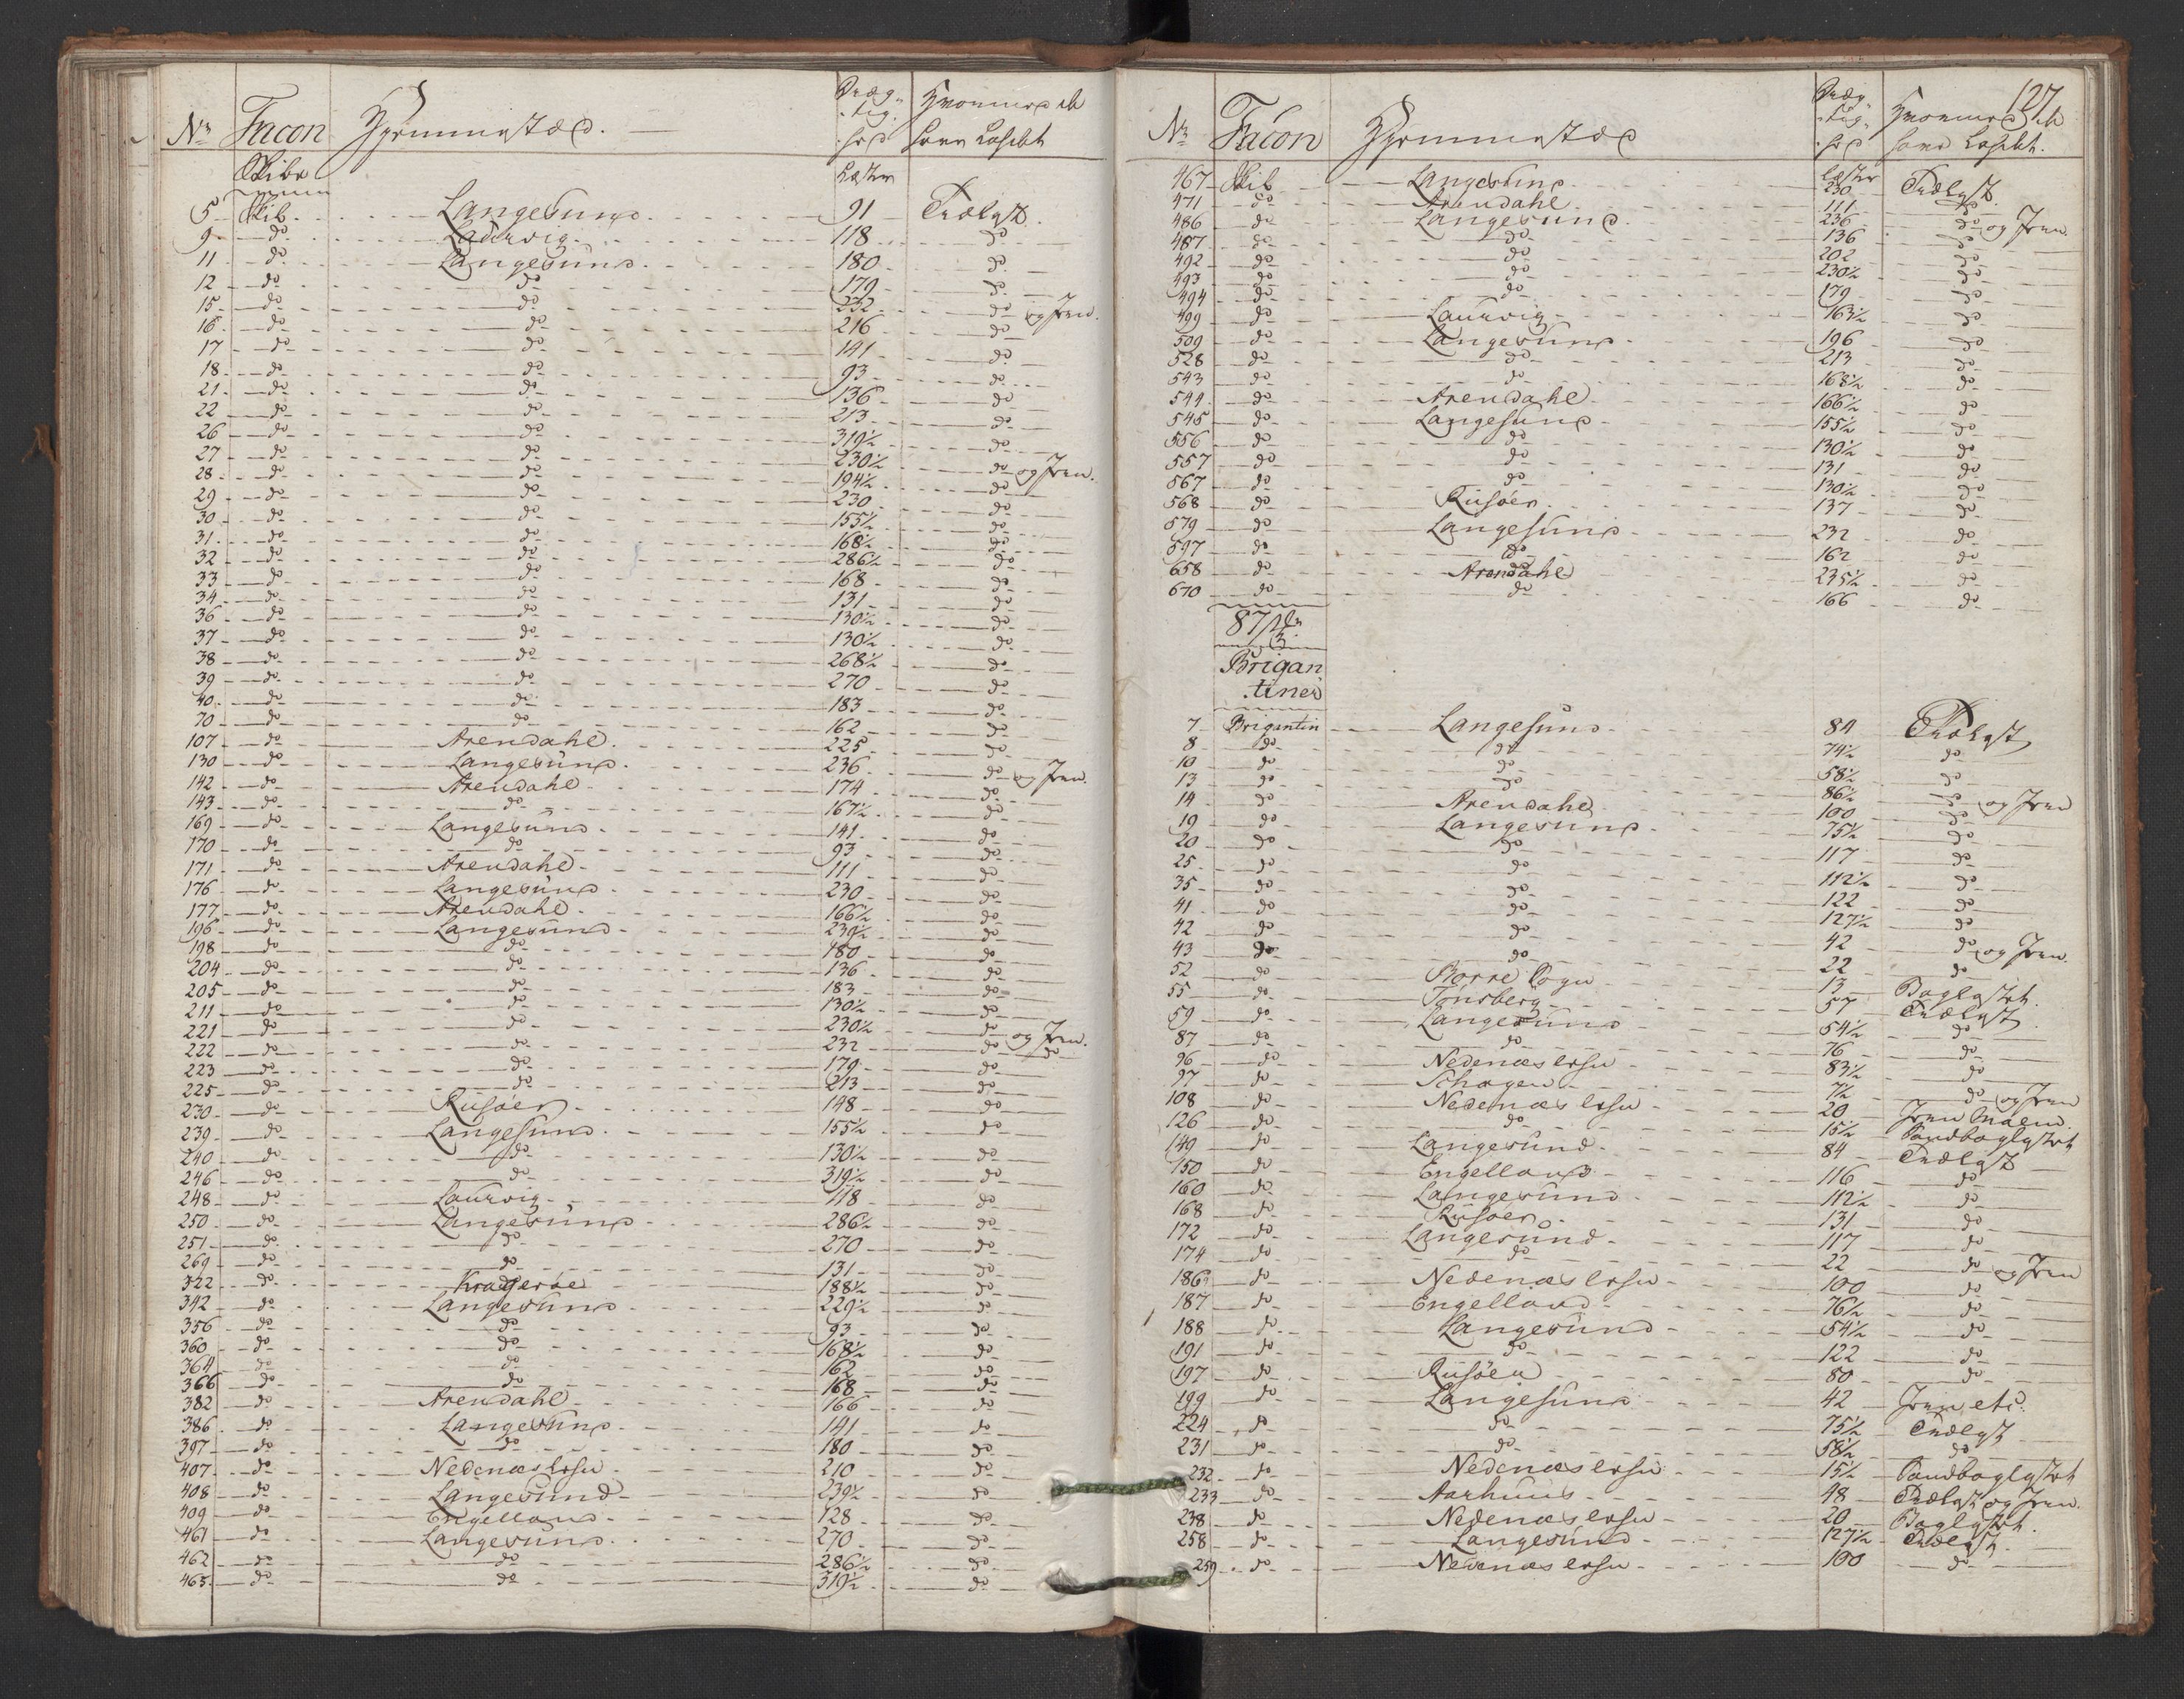 Nr Facon Hjemmestæd. Dræg-
tig-
hed Hvormed de
have Lasset
Skibe Læster
5 Skib Langesund 91 Trælast
9 do Laurvig 118 do
11 do Langesund 180 do
12 do do 179 do
15 do do 232 do og Jern.
16 do do 216 do
17 do do 141 do
18 do do 93 do
21 do do 136 do
22 do do 213 do
26 do do 319½ do
27 do do 230½ do og Jern.
28 do do 194½ do
29 do do 230 do
30 do do 155½ do
31 do do 168½ do
32 do do 286½ do
33 do do 168 do
34 do do 131 do
36 do do 130½ do
37 do do 130½ do
38 do do 268½ do
39 do do 270 do
40 do do 183 do
70 do do 162 do
107 do Arendahl 225 do
130 do Langesund 236 do og Jern.
142 do Arendahl 174 do
143 do do 167½ do
169 do Langesund 141 do
170 do do 93 do
171 do Arendahl 111 do
176 do Langesund 230 do
177 do Arendahl 166½ do
196 do Langesund 239½ do
198 do do 180 do
204 do do 136 do
205 do do 183 do
211 do do 130½ do
221 do do 230½ do og Jern.
222 do do 232 do do
223 do do 179 do
225 do do 213 do
230 do Riisöer 148 do
239 do Langesund 155½ do
240 do do 130½ do
246 do do 319½ do
248 do Laurvig 118 do
250 do Langesund 286½ do
251 do do 270 do
269 do do 131 do
322 do Kragerøe 188½ do
342 do Langesund 229½ do
356 do do 93 do
360 do do 168½ do
364 do do 162 do
366 do do 168 do
382 do Arendahl 166 do
386 do Langesund 141 do
397 do do 180 do
407 do Nedenæs lehn 210 do
408 do Langesund 239½ do
409 do Engelland 128 do
461 do Langesund 270 do
462 do do 286½ do
465 do do 319½ do
127
Nr Facon Hjemmestæd Dræg-
tig-
hed Hvormed de
have Lasset.
467 Skib Langesund Læster 230 Trælast
471 do Arendahl 111 do
486 do Langesund 236 do og Jern.
487 do do 136 do
492 do do 202 do
493 do do 230½ do
494 do do 179 do
499 do Laurvig 163½ do
509 do Langesund 196 do
528 do do 213 do
543 do do 168½ do
544 do Arendahl 166½ do
545 do Langesund 155½ do
556 do do 130½ do
557 do do 131 do
567 do do 130½ do
568 do Riisöer 137 do
579 do Langesund 232 do
597 do do 162 do
658 do Arendahl 235½ do
670 do do 166 do
87
Brigan-
tiner
7 Brigantin Langesund 84 Trælast
8 do do 74½ do
10 do do 58½ do
13 do do 86½ do og Jern
14 do Arendahl 100 do
19 do Langesund 75½ do
20 do do 117 do
25 do do 112½ do
35 do do 122 do
41 do do 127½ do
42 do do 42 do og Jern.
43 do do 22 do
52 do Borre Sogn 13 Baglastet.
55 do Tönsberg 57 Trælast
59 do Langesund 54½ do
87 do do 76 do
96 do Nedenæs lehn 83½ do
97 do Schagen 7½ do og Jern
108 do Nedenæs lehn 20 Jern
126 do do 15½ Sandbaglastet
149 do Langesund 84 Trælast
150 do Engelland 116 do
160 do Langesund 112½ do
168 do Riisöer 131 do
172 do Langesund 117 do
174 do do 22 do og Jern
186 do Nedenæs lehn 100 do
187 do Engelland 76½ do
188 do Langesund 54½ do
191 do do 122 do
197 do Riisöer 80 do
199 do Langesund 42 Jern etc.
224 do do 75½ Trælast
231 do do 58½ do
232 do Nedenæs lehn 15½ Sandbaglastet
233 do Aarhuus 48 Trælast og Jern.
238 do Nedenæs lehn 20 Baglastet.
258 do Langesund 127½ Trælast.
259 do Nedenæs lehn 100 do